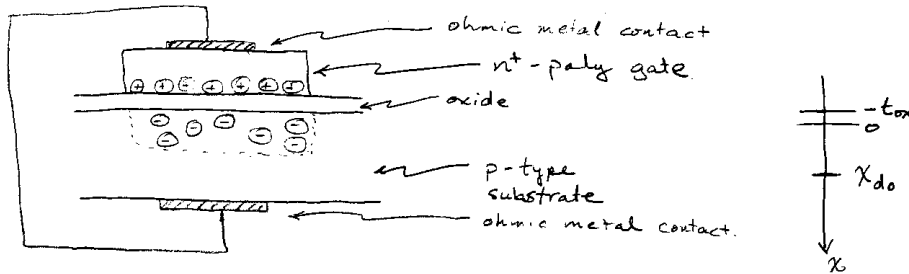 ohmic metal contact
n⁺-poly gate
oxide
+ + + + + + +
- - - - - - - - -
p-type
substrate
ohmic metal contact.
-tox
0
xdo
x